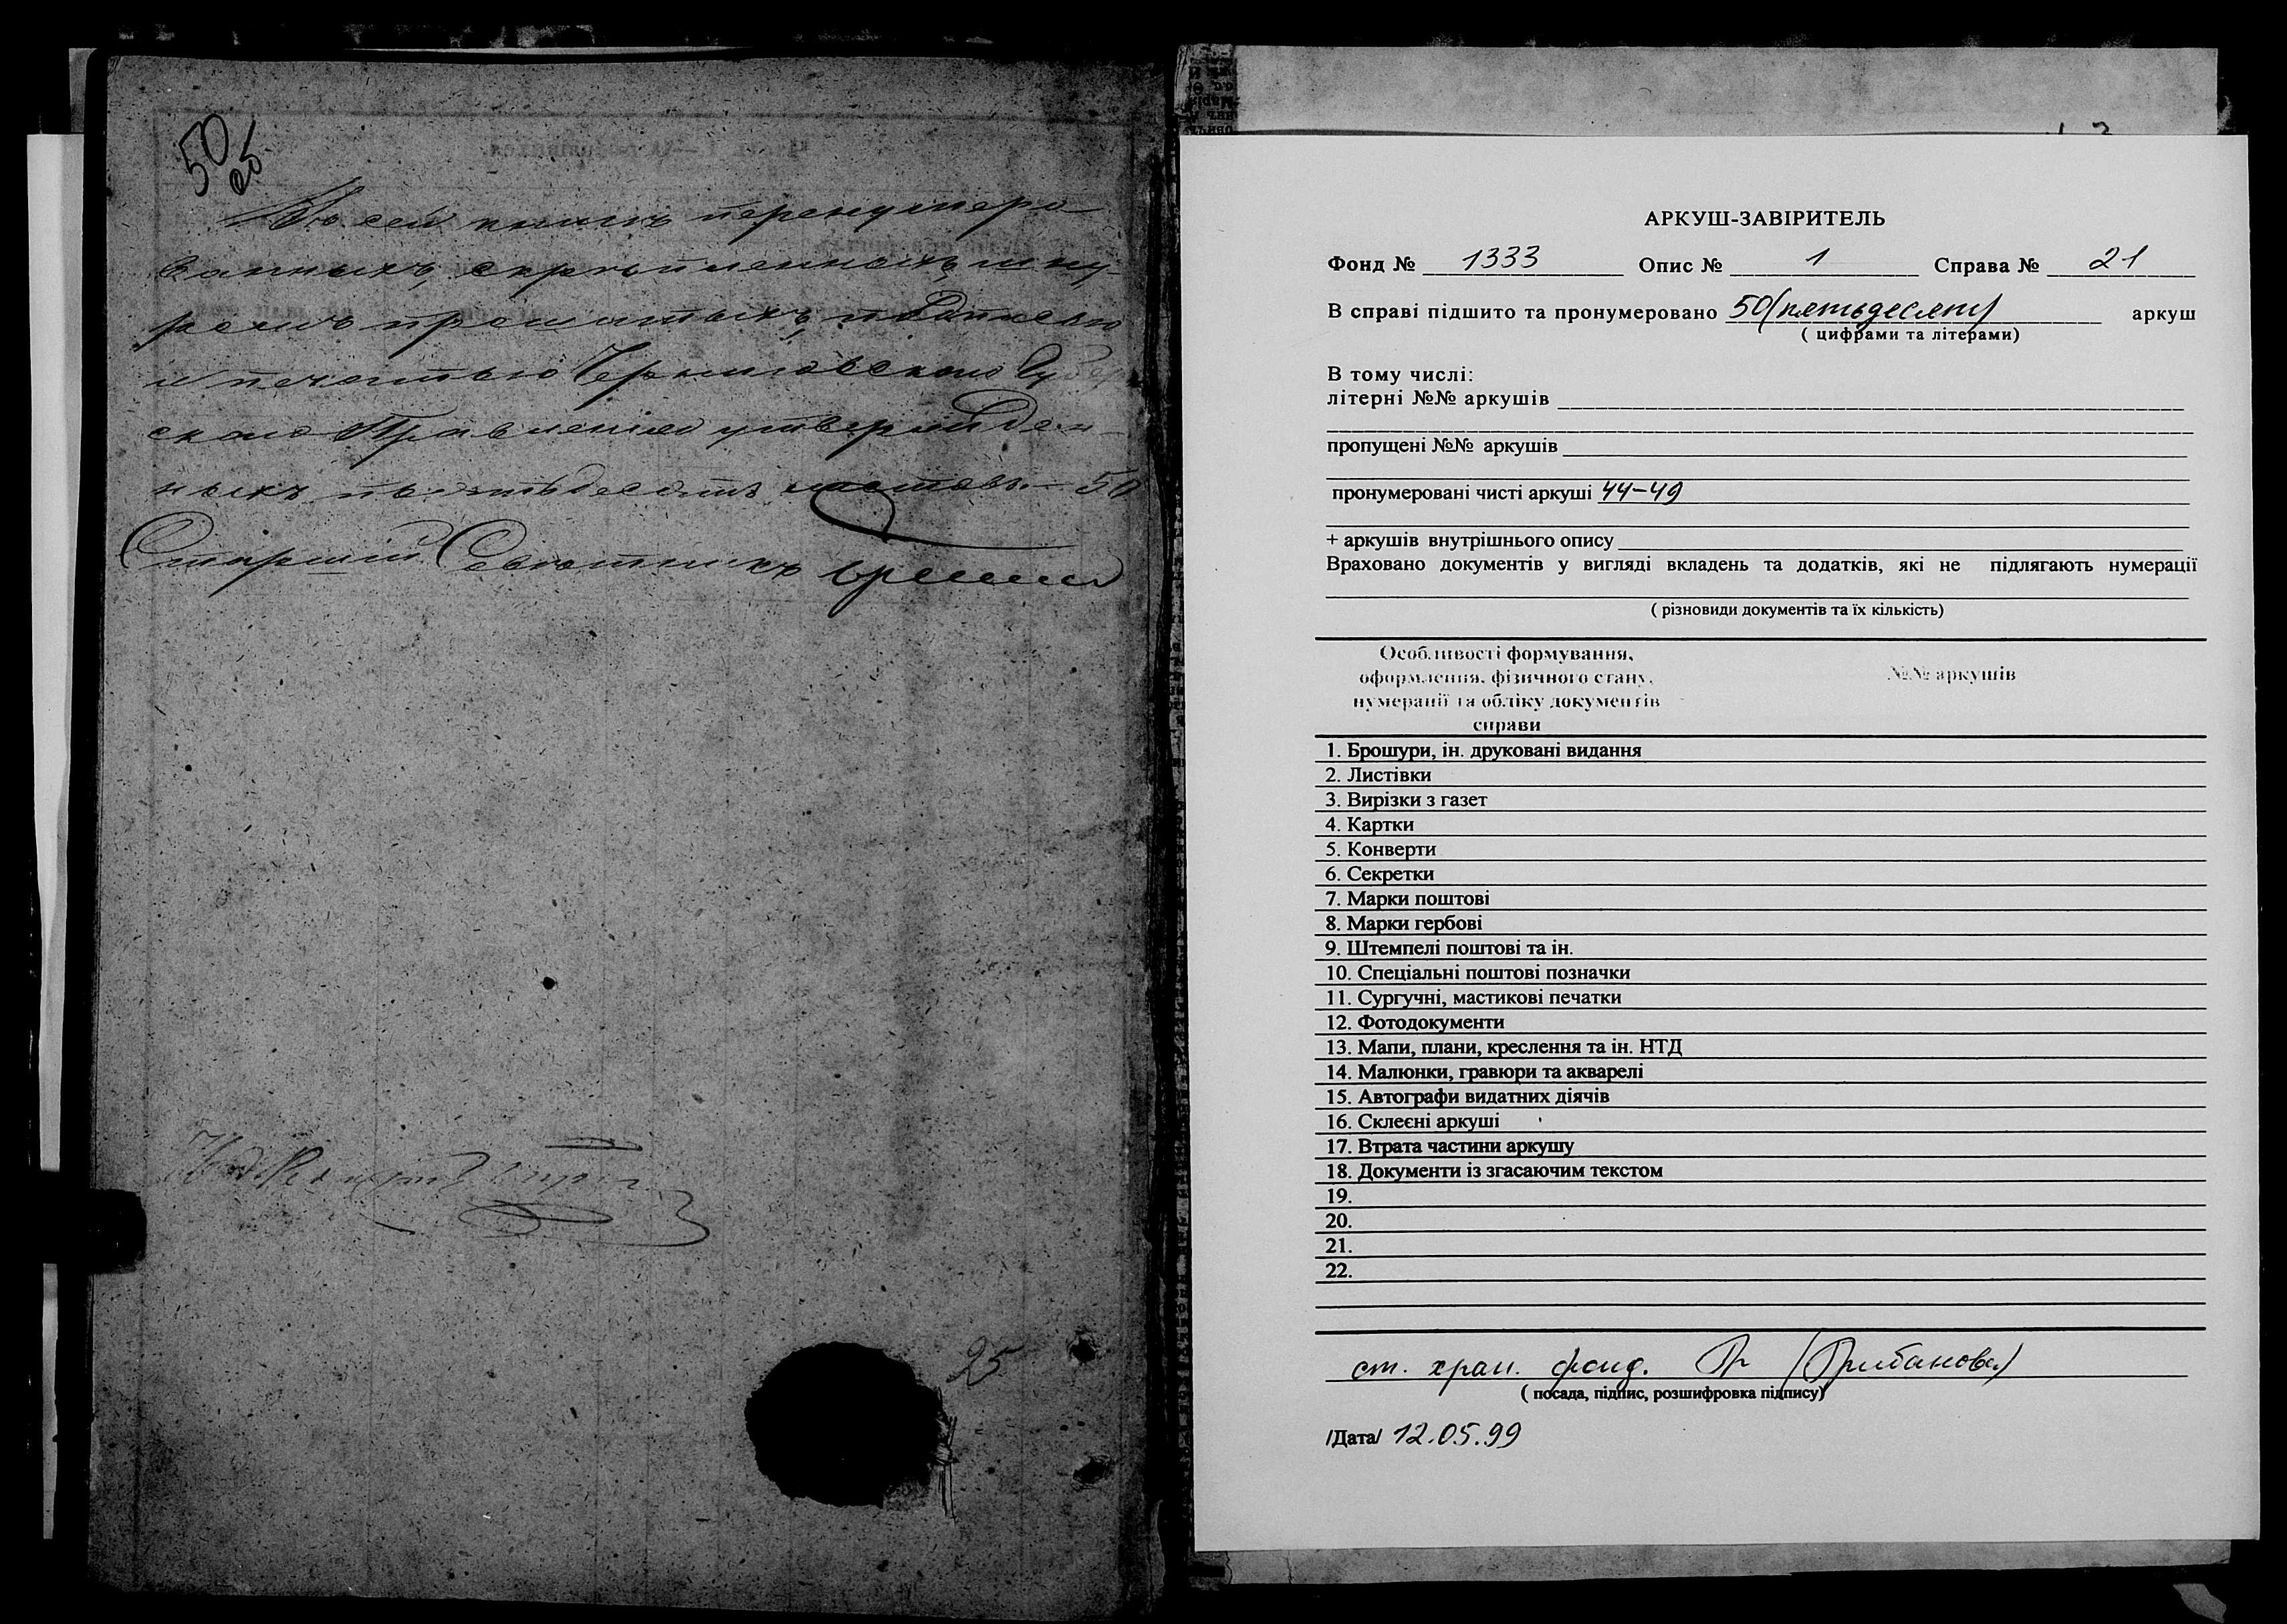 50
об
Въ сей книгѣ перенумеро-
ванныхъ, скрѣпленныхъ, шну-
ромъ прошитыхъ, подписью
и печатью Черниговскаго Губерн
скаго Правленія утвержден-
ныхъ пятьдесятъ листовъ – 50
Старшій Совѣтникъ
25
АРКУШ-ЗАВІРИТЕЛЬ
Фонд № 1333 Опис № 1 Справа № 21
В справі підшито та пронумеровано 50 (пятьдесят) аркуш
( цифрами та літерами)
В тому числі:
літерні №№ аркушів
пропущені №№ аркушів
пронумеровані чисті аркуші 44-49
+ аркушів внутрішнього опису
Враховано документів у вигляді вкладень та додатків, які не підлягають нумерації
( різновиди документів та їх кількість)
Особливості формування, №№ аркушів
оформлення, фізичного стану,
нумерації та обліку документів
справи
1. Брошури, ін. друковані видання
2. Листівки
3. Вирізки з газет
4. Картки
5. Конверти
6. Секретки
7. Марки поштові
8. Марки гербові
9. Штемпелі поштові та ін.
10. Спеціальні поштові позначки
11. Сургучні, мастикові печатки
12. Фотодокументи
13. Мапи, плани, креслення та ін. НТД
14. Малюнки, гравюри та акварелі
15. Автографи видатних діячів
16. Склеєні аркуші
17. Втрата частини аркушу
18. Документи із згасаючим текстом
19.
20.
21.
22.
ст. хран. фонд. (Грибанова)
( посада, підпис, розшифровка підпису)
/Дата/ 12.05.99